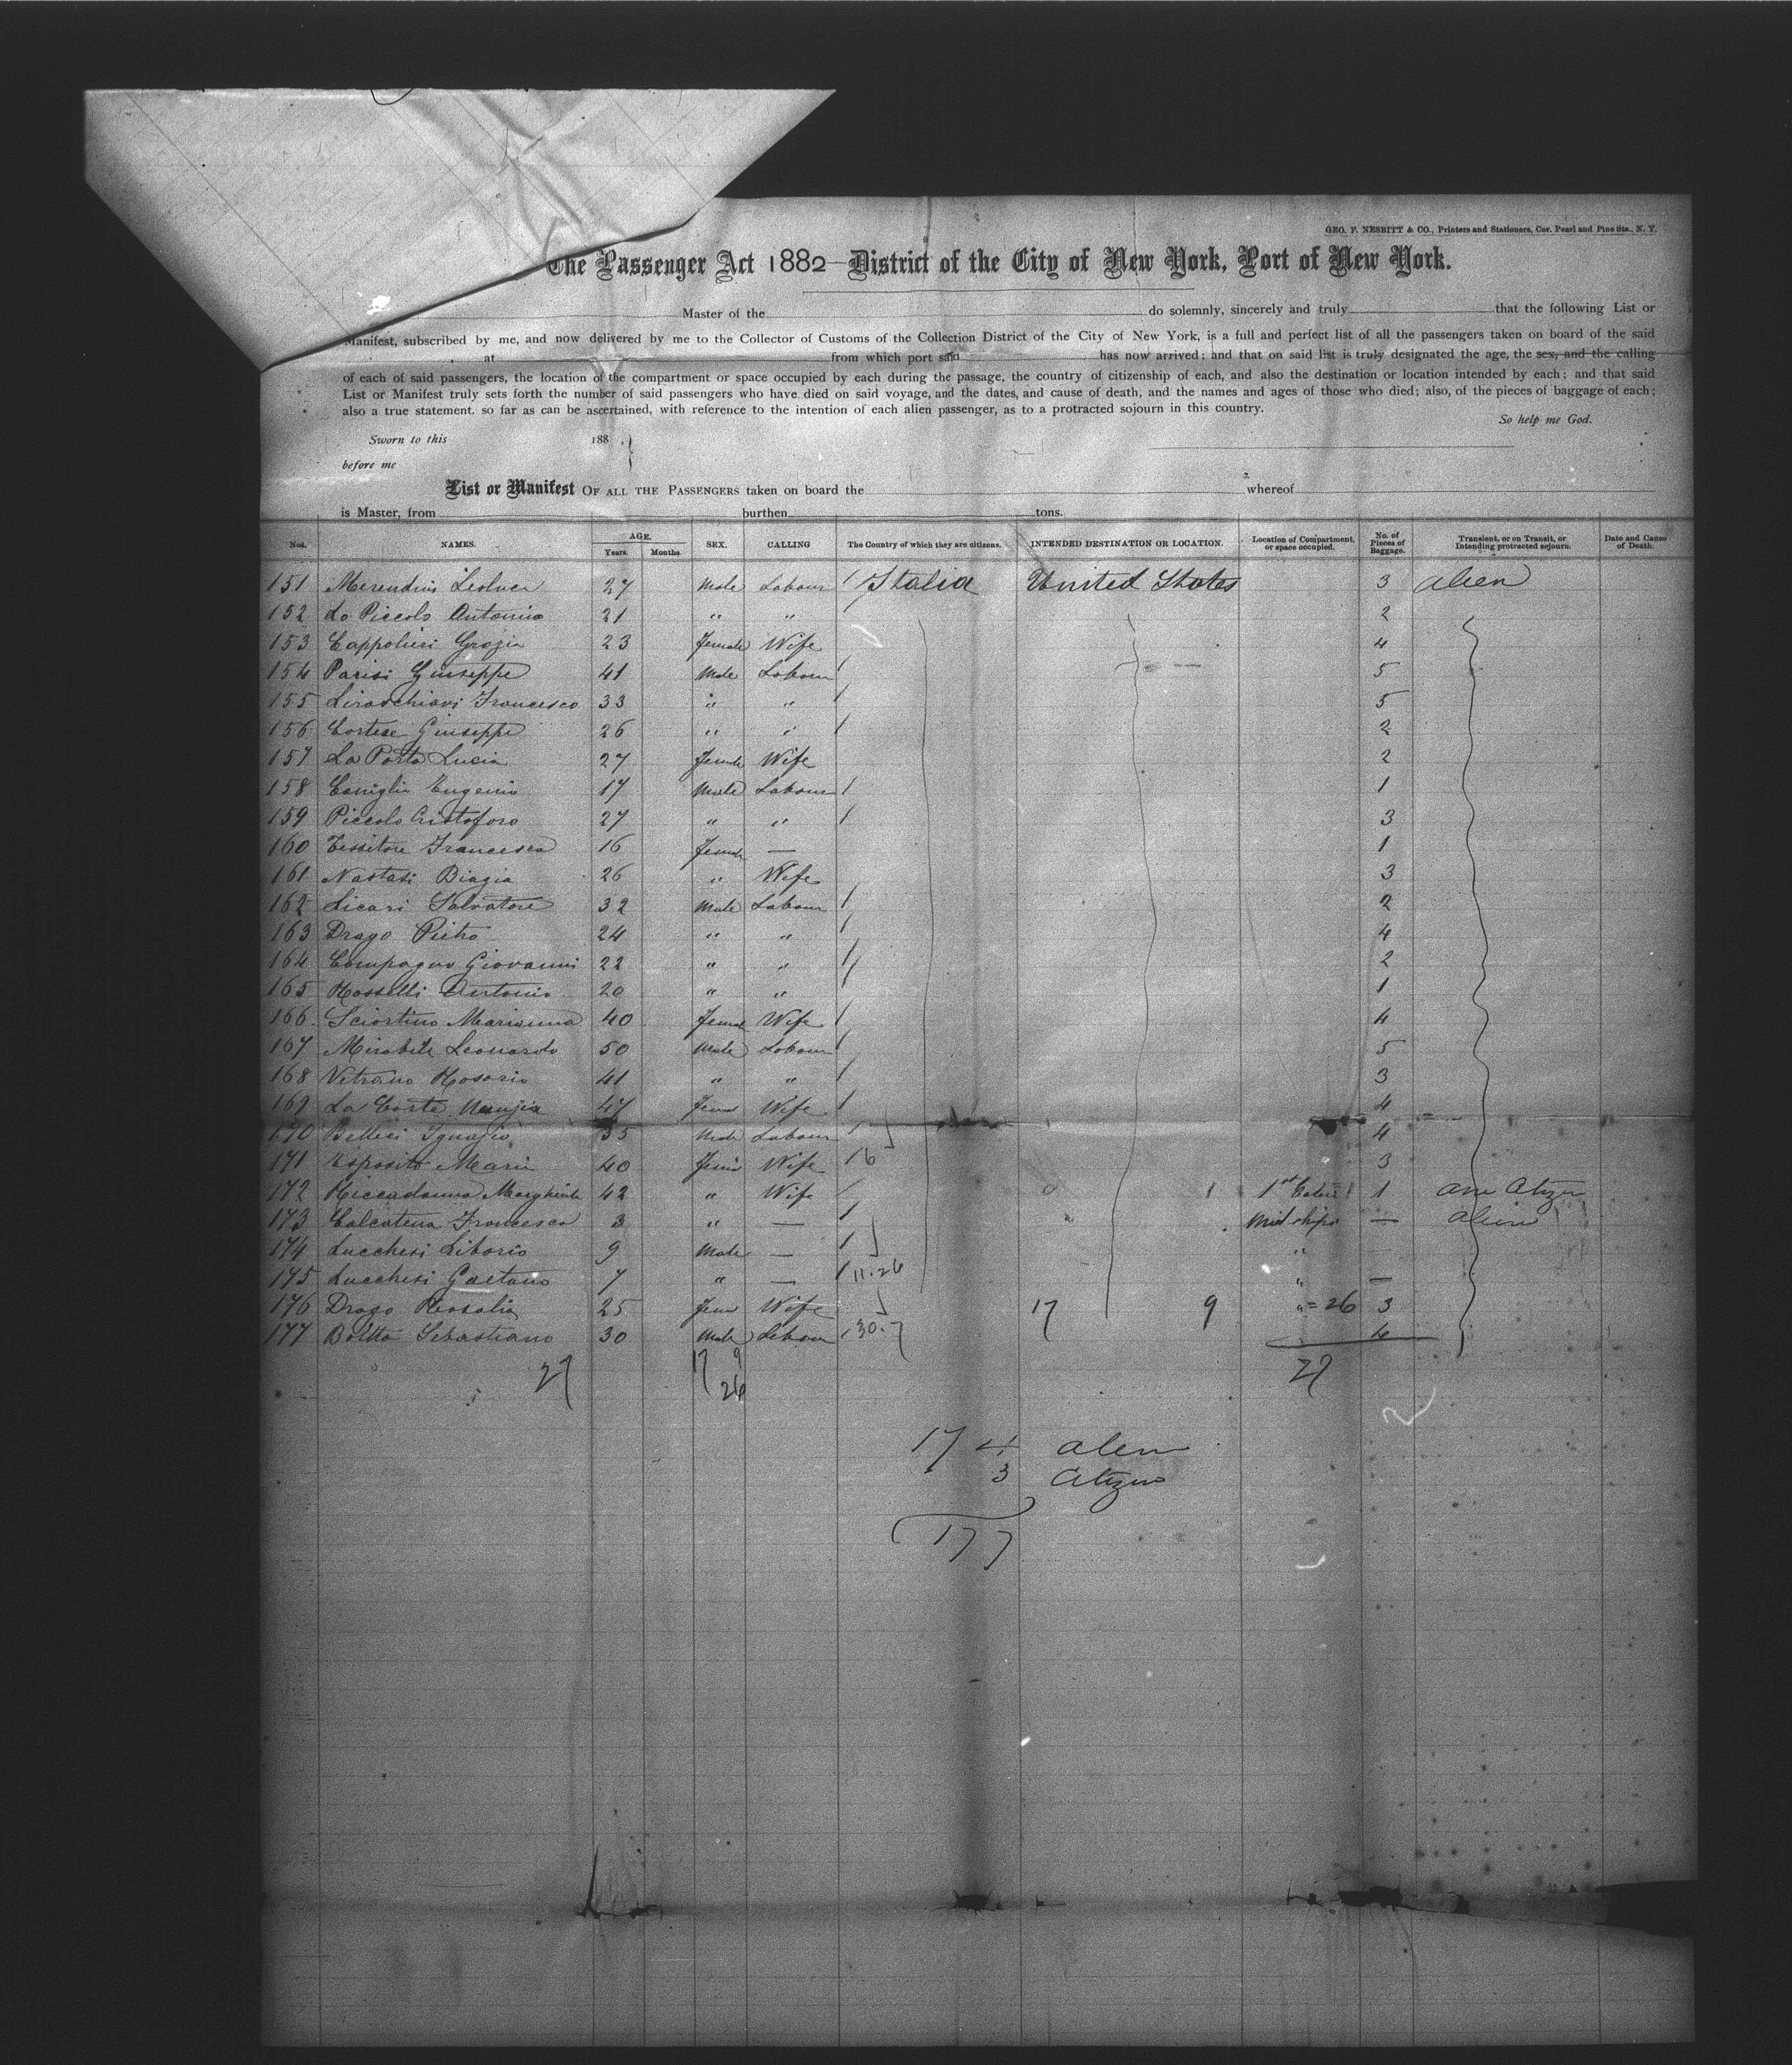 GEO. F. NESBITT & CO., Printers and Stationers, Cor. Pearl and Pine Sts., N. Y.
The Passenger Act 1882—District of the City of New York, Port of New York.
Master of the do solemnly, sincerely and truly that the following List or
Manifest, subscribed by me, and now delivered by me to the Collector of Customs of the Collection District of the City of New York, is a full and perfect list of all the passengers taken on board of the said
at from which port said has now arrived; and that on said list is truly designated the age, the sex, and the calling
of each of said passengers, the location of the compartment or space occupied by each during the passage, the country of citizenship of each, and also the destination or location intended by each; and that said
List or Manifest truly sets forth the number of said passengers who have died on said voyage, and the dates, and cause of death, and the names and ages of those who died; also, of the pieces of baggage of each;
also a true statement. so far as can be ascertained, with reference to the intention of each alien passenger, as to a protracted sojourn in this country.
So help me God.
Sworn to this 188 ,
before me
List or Manifest OF ALL THE PASSENGERS taken on board the whereof
is Master, from burthen tons.
Nos. NAMES. AGE. Years. Months. SEX. CALLING The Country of which they are citizens. INTENDED DESTINATION OR LOCATION. Location of Compartment, or space occupied. No. of Pieces of Baggage. Transient, or on Transit, or Intending protracted sojourn. Date and Cause of Death.
151 Merendino Leoluca 27 Male Labour Italia United States 3 alien
152 Lo Piccolo Antonino 21 " " 2
153 Grazia 23 Female Wife 4
154 Parisi Giuseppe 41 Male Labour 5
155 Francesco 33 " " 5
156 Cortese Giuseppe 26 " " 2
157 La Porta Lucia 27 Female Wife 2
158 Coniglio Eugenio 17 Male Labour 1
159 Piccolo Cristoforo 27 " " 3
160 Tessitore Francesca 16 Female — 1
161 Nastasi Biagia 26 " Wife 3
162 Licari Salvatore 32 Male Labour 2
163 Drago Pietro 24 " " 4
164 Compagno Giovanni 22 " " 2
165 Rosselli Antonio 20 " " 1
166 Sciortino Marianna 40 Female Wife 4
167 Mirabile Leonardo 50 Male Labour 5
168 Vitrano Rosario 41 " " 3
169 La Corte Nunzia 47 Fem Wife 4
170 Belleci Ignazio 35 Male Labour 4
171 Esposito Maria 40 Fem Wife 16 3
172 Riccadonna Margherita 42 " Wife 1 1st Cabin 1 am Citizen
173 Calcaterra Francesca 3 " — Midships — alien
174 Lucchesi Liborio 9 Male — " —
175 Lucchesi Gaetano 7 " — 11.26 " —
176 Drago Rosalia 25 Fem Wife 17 9 " = 26 3
177 Sebastiano 30 Male Labour 30.7 4
27 17 9 27
26
174 alien
3 Citizen
177